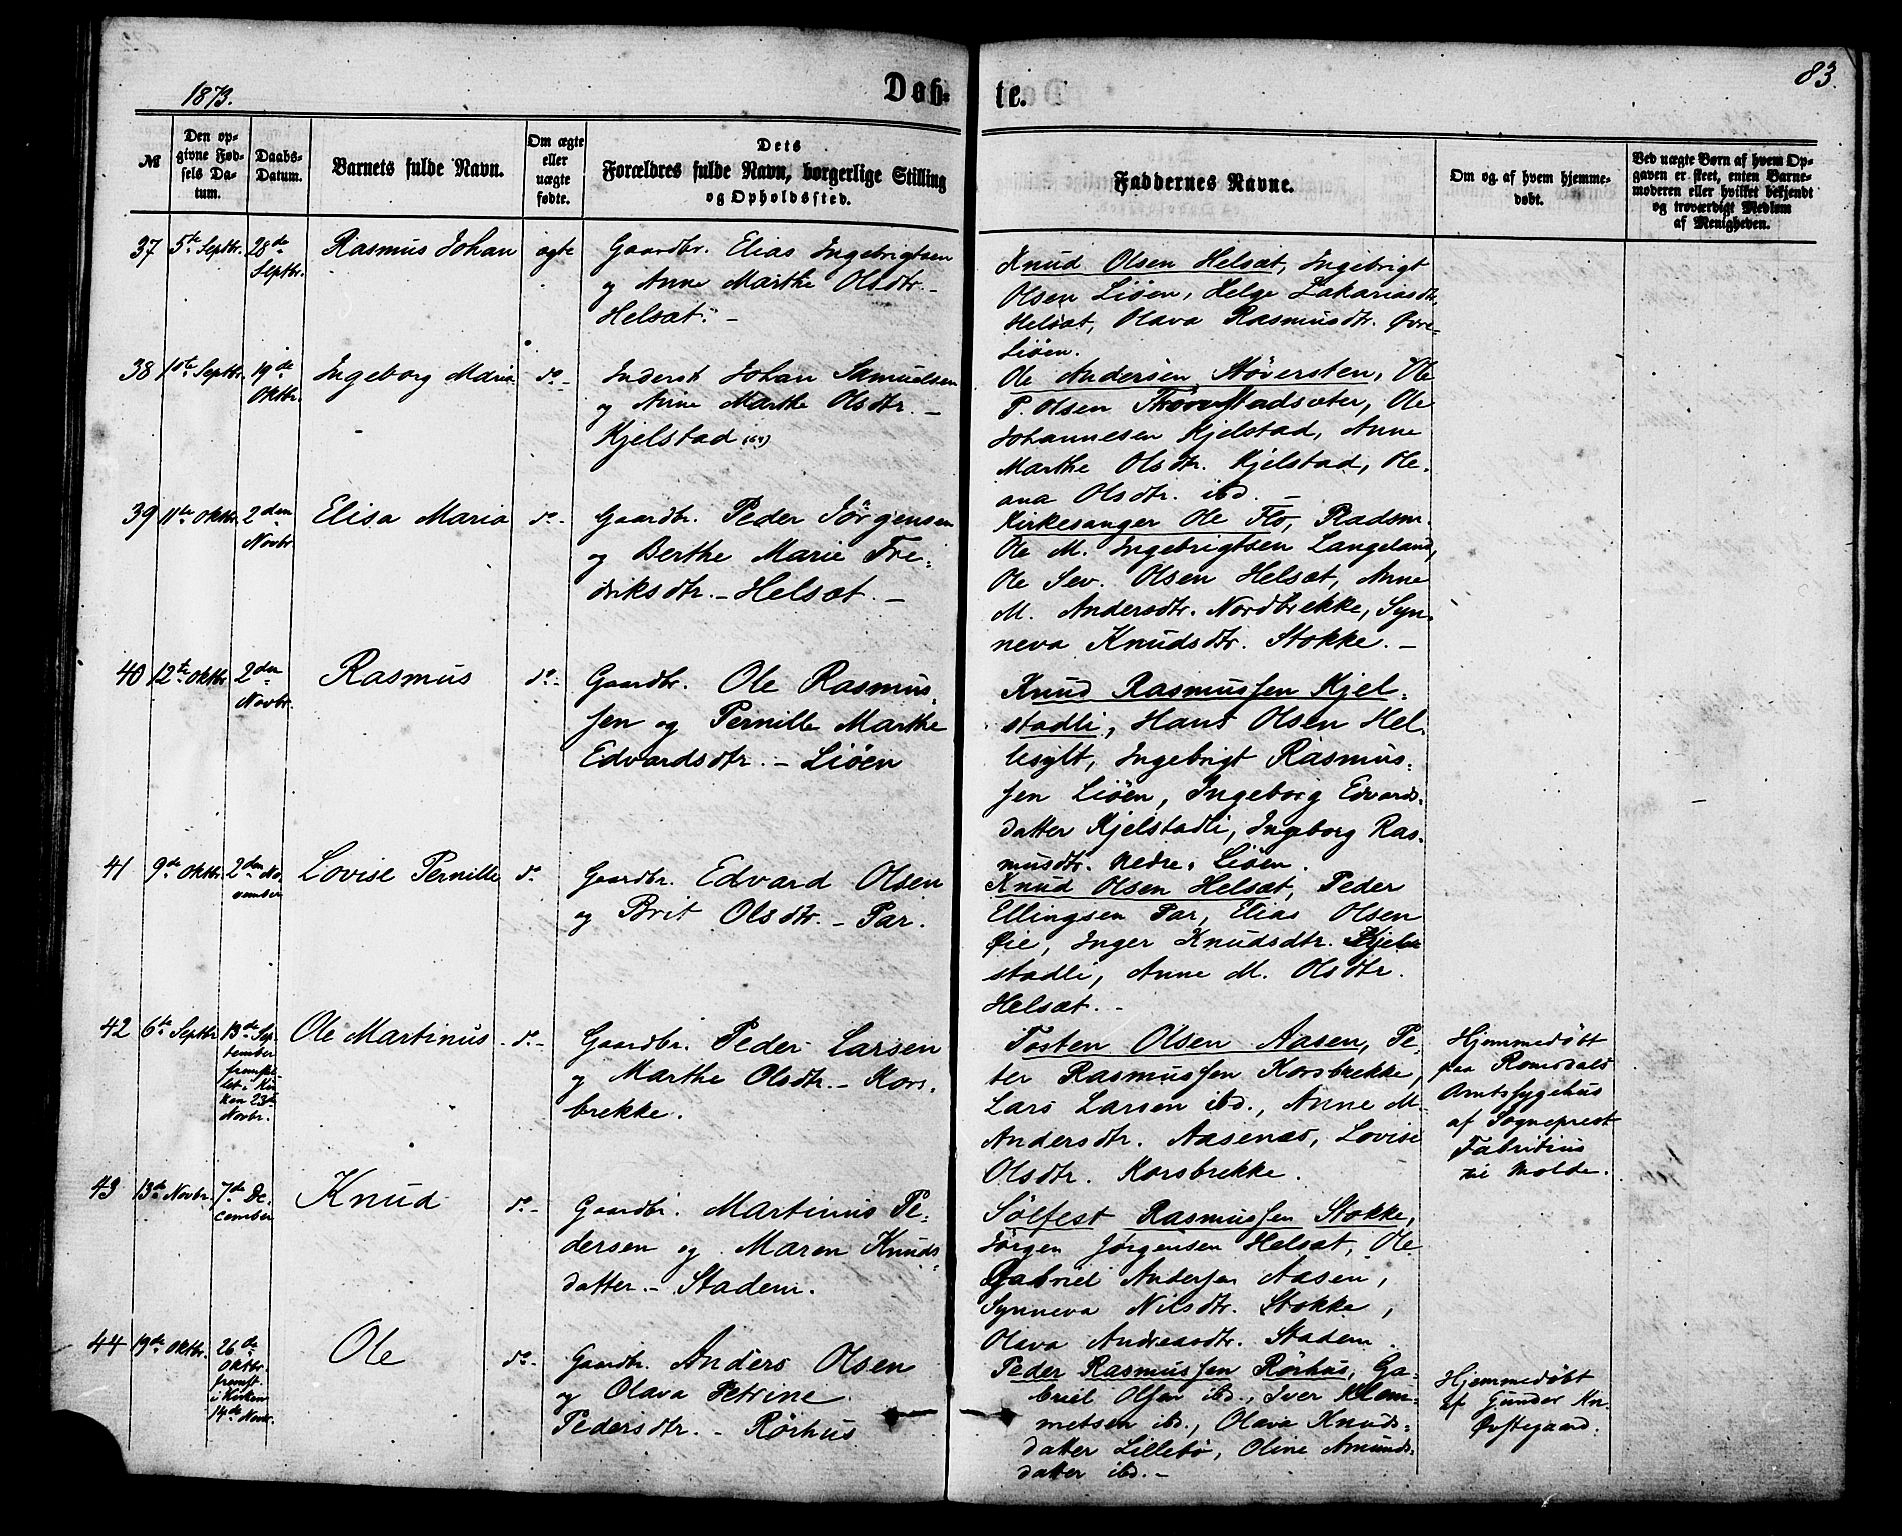 83.
1873.
Døb-
te.
№
Den op-
givne Fød-
sels Da-
tum.
Daabs-
Datum.
Barnets fulde Navn.
Om ægte
eller
uægte
fødte.
Dets
Forældres fulde Navn, borgerlige Stilling
og Opholdssted.
Faddernes Navne.
Om og af hvem hjemme-
døbt.
Ved uægte Børn af hvem Op-
gaven er skeet, enten Barne-
moderen eller hvilket bekjendt
og troværdigt Medlem
af Menigheden.
37
5te Septbr.
28de
Septbr.
Rasmus Johan
ægte
Gaardbr. Elias Ingebrigtsen
og Anne Marthe Olsdtr. -
Helsæt. -
Knud Olsen Helsæt, Ingebrigt
Olsen Liøen, Helge Zakariasdtr.
Helsæt, Olava Rasmusdtr. Øvre-
Liøen.
38
10te Septbr.
19de
Oktbr.
Ingeborg Maria
do -
Inderst Johan Samuelsen
og Anne Marthe Olsdtr. -
Kjelstad
Ole Andersen Støversten, Ole
P. Olsen Tronstadsæter, Ole
Johannesen Kjelstad, Anne
Marthe Olsdtr. Kjelstad, Ole-
ana Olsdtr. ibd. -
39
11te Oktbr.
2den
Novbr.
Elisa Maria
do -
Gaardbr. Peder Jörgensen
og Berthe Marie Fre-
driksdtr. - Helsæt. -
Kirkesanger Ole Flo, Pladsm.
Ole M. Ingebrigtsen Langeland,
Ole Sev. Olsen Helsæt, Anne
M. Andersdtr. Nordbrekke, Syn-
neva Knudsdtr. Stokke. -
40
12te Oktbr.
2den
Novbr.
Rasmus
do -
Gaardbr. Ole Rasmus-
sen og Pernille Marthe
Edvardsdtr. - Liøen
Knud Rasmussen Kjel-
stadli, Hans Olsen Hel-
lesylt, Ingebrigt Rasmus-
sen Liøen, Ingeborg Edvards-
datter Kjelstadli, Ingeborg Ras-
musdtr. Nedre- Liøen.
41
9de Oktbr.
2den No-
vember
Lovise Pernille
do
Gaardbr. Edvard Olsen
og Brit Olsdtr. - Par.
Knud Olsen Helsæt, Peder
Ellingsen Par, Elias Olsen
Øie, Inger Knudsdtr. Kjel-
stadli, Anne M. Olsdtr.
Helsæt. -
42
6te Septbr
13de Sep-
tember
fremstil-
let i Kir-
ken 23de
Novbr.
Ole Martinus
- do -
Gaardbr. Peder Larsen
og Marthe Olsdtr. - Kors-
brekke.
Tosten Olsen Aasen, Pe-
ter Rasmussen Korsbrekke,
Lars Larsen ibd., Anne M.
Andersdtr. Aasenæs, Lovise
Olsdtr. Korsbrekke.
Hjemmedøbt
paa Romsdals
Amtssygehus
af Sogneprest
Fabritius
i Molde.
43
13de Novbr.
7de De-
cember
Knud
do -
Gaardbr. Martinus Pe-
dersen og Maren Knuds-
datter - Stadem.
Sölfest Rasmussen Stokke,
Jörgen Jørgensen Helsæt, Ole
Gabriel Andersen Aasen,
Synneva Nilsdtr. Stokke,
Olava Andreasdtr. Stadem.
44
19de Oktbr.
26de
Oktbr.
fremst.
i Kirken
14de Novbr.
Ole
do -
Gaardbr. Anders Olsen
og Olava Petrine
Pedersdtr. - Rörhus
Peder Rasmussen Rörhus, Ga-
briel Olsen ibd., Iver Klem-
metsen ibd., Olava Knuds-
datter Lillebö, Oline Amunds-
datter ibd. -
Hjemmedøbt
af Gunder Kn.
Ørstegaard.